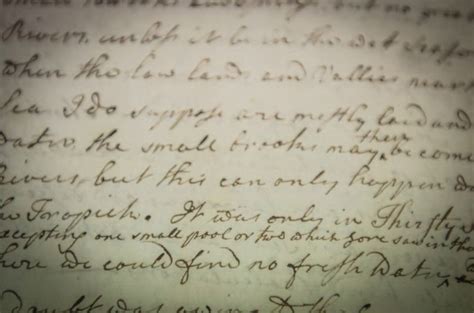 but no
Rivers, unless it be in the wet Seas
when the low lands and Vallies near
Sea I do suppose are mostly laid und
water, the small brooks may then become
Rivers, but this can only happen w
he Tropick. It was only in Thirsty S
excepting one small pool or two which Gore saw in the
here we could find no fresh Water,
doubt was owing to the